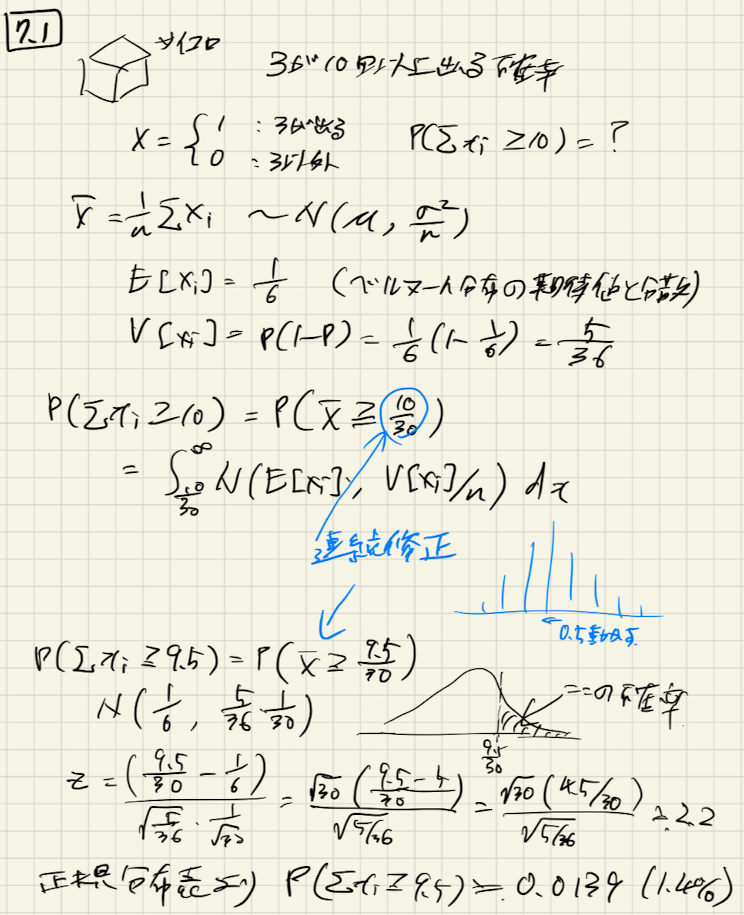 7.1
サイコロ 3が10回以上出る確率
X = { 1 : 3が出る
0 : 3以外 P(Σxi ≥ 10) = ?
X̄ = 1/n ΣXi ~ N(μ, σ²/n)
E[Xi] = 1/6 (ベルヌーイ分布の期待値と分散)
V[Xi] = P(1-P) = 1/6 (1 - 1/6) = 5/36
P(Σxi ≥ 10) = P(X̄ ≧ 10/30)
= ∫_{10/30}^{∞} N(E[Xi], V[Xi]/n) dx
連続修正
0.5動かす
P(Σxi ≧ 9.5) = P(X̄ ≧ 9.5/30)
N(1/6, 5/36 · 1/30) ここの確率
9.5/30
z = (9.5/30 - 1/6) / (√(5/36) · 1/√30) = √30 ((9.5-5)/30) / √(5/36) = √30 (4.5/30) / √(5/36) ≒ 2.2
正規分布表より P(Σxi ≧ 9.5) ≒ 0.0139 (1.4%)